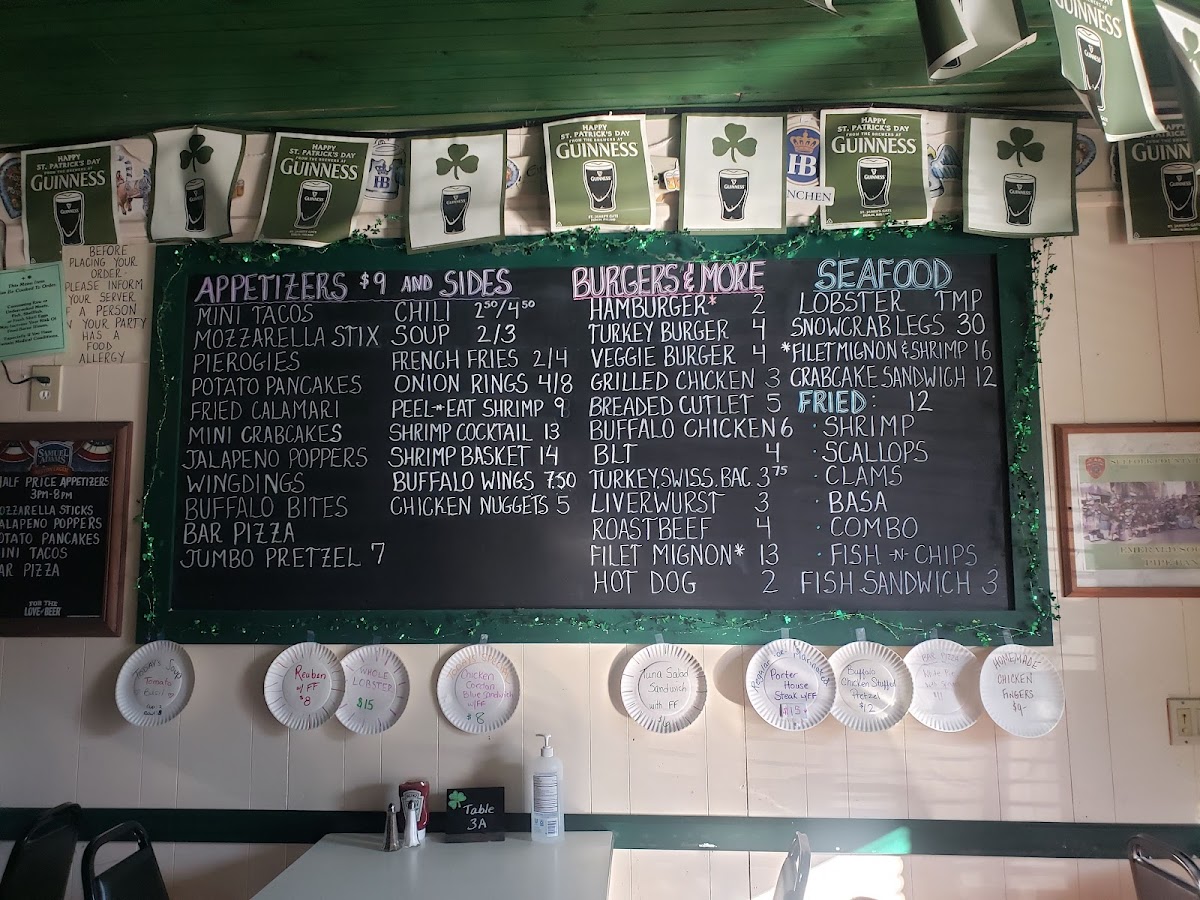 HAPPY
ST. PATRICK'S DAY
FROM THE BREWERS AT
GUINNESS
GUINNESS
HAPPY
ST. PATRICK'S DAY
FROM THE BREWERS AT
GUINNESS
GUINNESS
HAPPY
ST. PATRICK'S DAY
FROM THE BREWERS AT
GUINNESS
GUINNESS
HB
HAPPY
ST. PATRICK'S DAY
FROM THE BREWERS AT
GUINNESS
GUINNESS
GUINNESS
GUINNESS
HB
NCHEN
BEFORE
PLACING YOUR
ORDER-
PLEASE INFORM
YOUR SERVER
F A PERSON
N YOUR PARTY
HAS A
FOOD
ALLERGY
APPETIZERS $9 AND SIDES
MINI TACOS
MOZZARELLA STIX
PIEROGIES
POTATO PANCAKES
FRIED CALAMARI
MINI CRABCAKES
JALAPENO POPPERS
WINGDINGS
BUFFALO BITES
BAR PIZZA
JUMBO PRETZEL 7
CHILI 2.50/4.50
SOUP 2/3
FRENCH FRIES 2/4
ONION RINGS 4/8
PEEL-N-EAT SHRIMP 9
SHRIMP COCKTAIL 13
SHRIMP BASKET 14
BUFFALO WINGS 7.50
CHICKEN NUGGETS 5
BURGERS & MORE
HAMBURGER* 2
TURKEY BURGER 4
VEGGIE BURGER 4
GRILLED CHICKEN 3
BREADED CUTLET 5
BUFFALO CHICKEN 6
BLT 4
TURKEY, SWISS, BAC 3.75
LIVERWURST 3
ROASTBEEF 4
FILET MIGNON* 13
HOT DOG 2
SEAFOOD
LOBSTER TMP
SNOWCRAB LEGS 30
*FILET MIGNON & SHRIMP 16
CRABCAKE SANDWICH 12
FRIED: 12
· SHRIMP
· SCALLOPS
· CLAMS
· BASA
· COMBO
· FISH -N- CHIPS
FISH SANDWICH 3
SAMUEL
ADAMS
HALF PRICE APPETIZERS
3PM-8PM
MOZZARELLA STICKS
JALAPENO POPPERS
POTATO PANCAKES
MINI TACOS
BAR PIZZA
FOR THE
LOVE of BEER
EMERALD SO
PIPE BAN
Today's Soup
Tomato
Basil
Reuben
w/ FF
$8
WHOLE
LOBSTER
$15
Chicken
Cordon
Blue Sandwich
w/FF
$8
Tuna Salad
Sandwich
with FF
Regular or Marinated
Porter
House
Steak w/FF
$15
Buffalo
Chicken Stuffed
Pretzel
$12
BAR PIZZA
HOMEMADE
CHICKEN
FINGERS
$9-
Table
3A